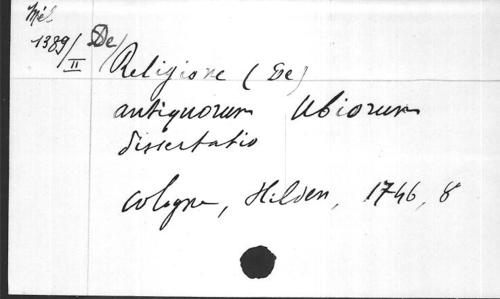 Mél
1389/II
De/
Religione (De)
antiquorum Ubiorum
dissertatio
Cologne, Hilden, 1746, 8°